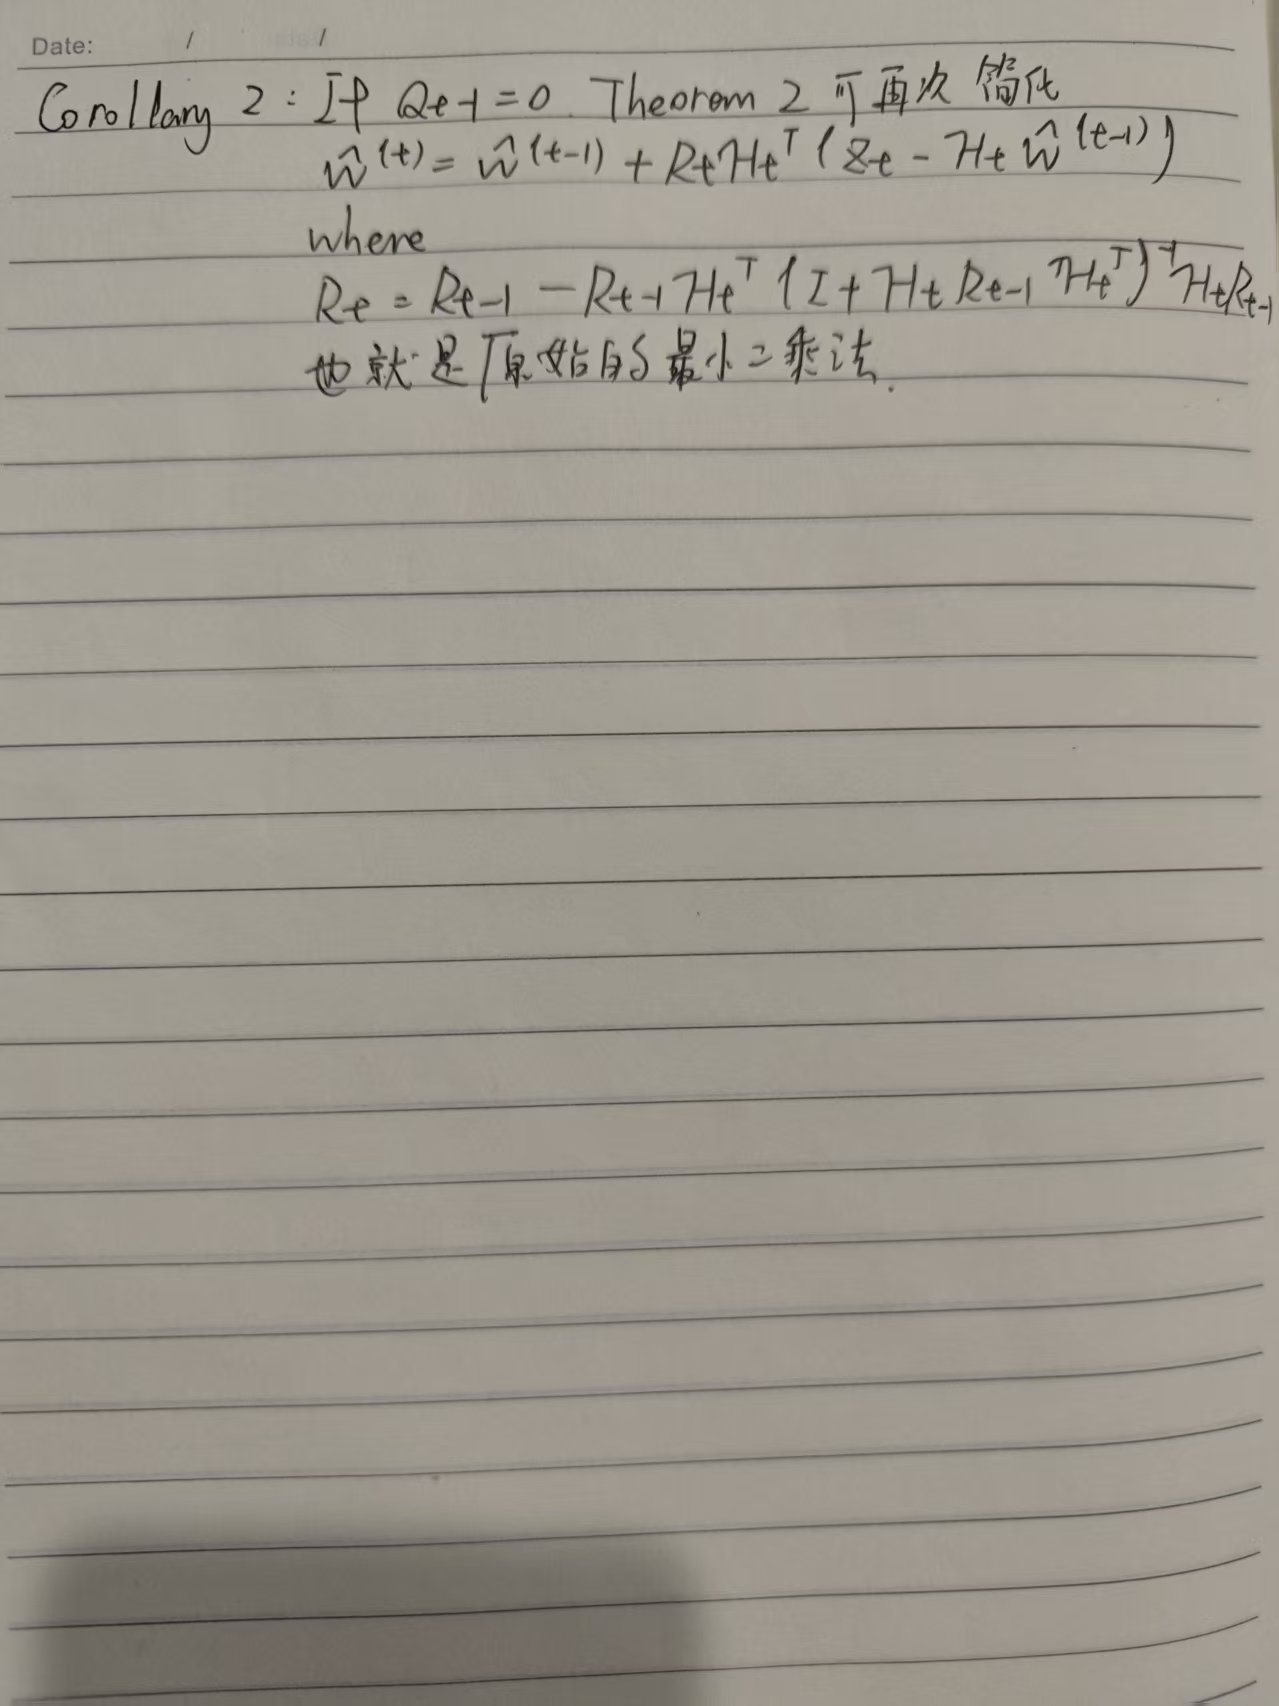 Date: / /
Corollary 2: If Qt-1=0. Theorem 2 可再次简化
ŵ^(t) = ŵ^(t-1) + RtHt^T (Zt - Ht ŵ^(t-1))
where
Rt = Rt-1 - Rt-1 Ht^T (I + Ht Rt-1 Ht^T)^-1 Ht Rt-1
也就是原始的最小二乘法.